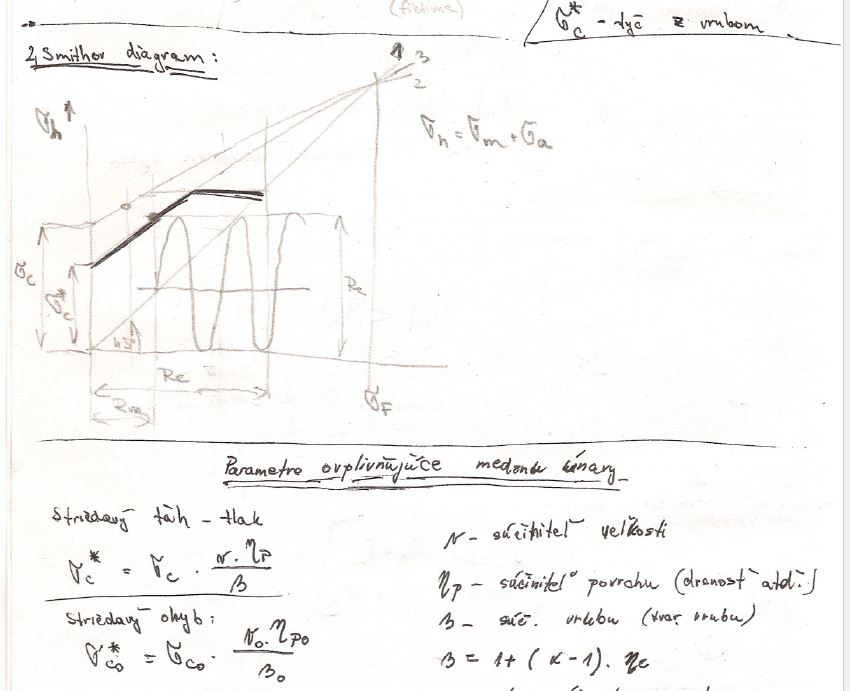 (fiktívna)
σc* - tyč z vrubom
2, Smithov diagram:
1
3
2
σh
σh = σm + σa
σc
σc*
Re
45°
Re
Rm
σF
Parametre ovplivňujúce medznú únavy
Striedavý ťah - tlak
σc* = σc · ν · ηp / β
Striedavý ohyb:
σco* = σco · νo · ηpo / βo
ν - súčiniteľ veľkosti
ηp - súčiniteľ povrchu (drsnosť atď.)
β - súč. vrubu (tvar vrubu)
β = 1 + (α - 1) · ηc